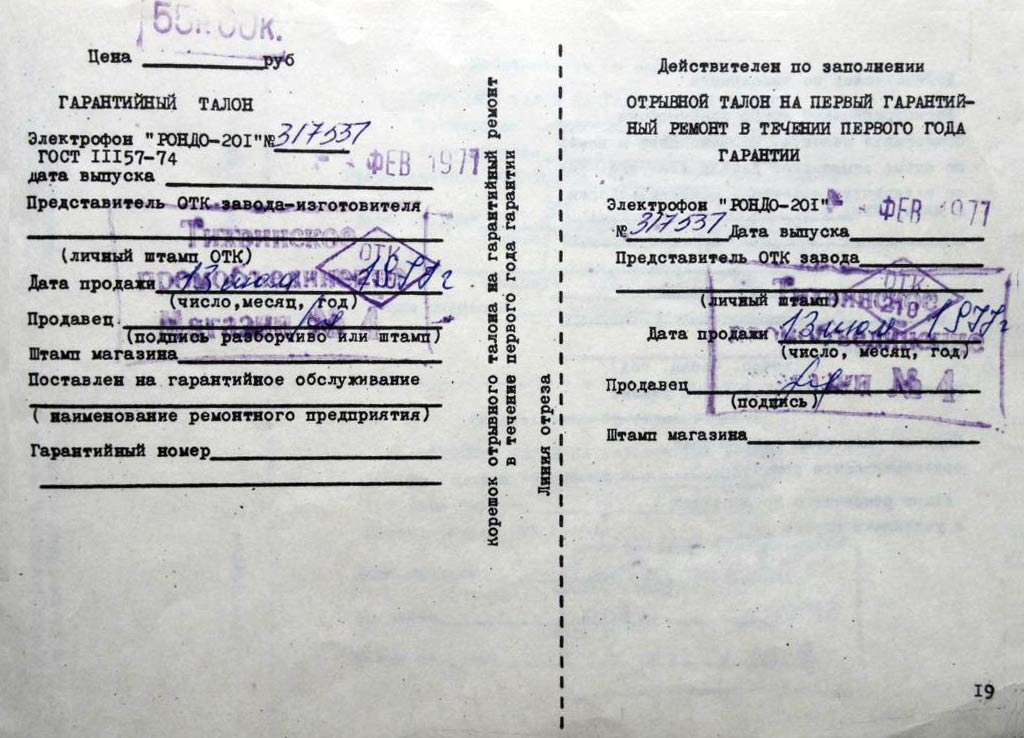 Цена руб
ГАРАНТИЙНЫЙ ТАЛОН
Электрофон "РОНДО-20I" № 317537
ГОСТ III57-74
ФЕВ 1977
дата выпуска
Представитель ОТК завода-изготовителя
Тихвинское
ОТК
(личный штамп ОТК)
Дата продажи 13
(число, месяц, год)
Продавец
Магазин № 4
(подпись разборчиво или штамп)
Штамп магазина
Поставлен на гарантийное обслуживание
( наименование ремонтного предприятия)
Гарантийный номер
Корешок отрывного талона на гарантийный ремонт
в течение первого года гарантии
Линия отреза
Действителен по заполнении
ОТРЫВНОЙ ТАЛОН НА ПЕРВЫЙ ГАРАНТИЙ-
НЫЙ РЕМОНТ В ТЕЧЕНИИ ПЕРВОГО ГОДА
ГАРАНТИИ
Электрофон "РОНДО-20I"
ФЕВ 1977
№ 317537 Дата выпуска
Представитель ОТК завода
ОТК
218
(личный штамп)
Тихвинское
Дата продажи 1977 г
(число, месяц, год)
Продавец
№ 4
(подпись)
Штамп магазина
I9